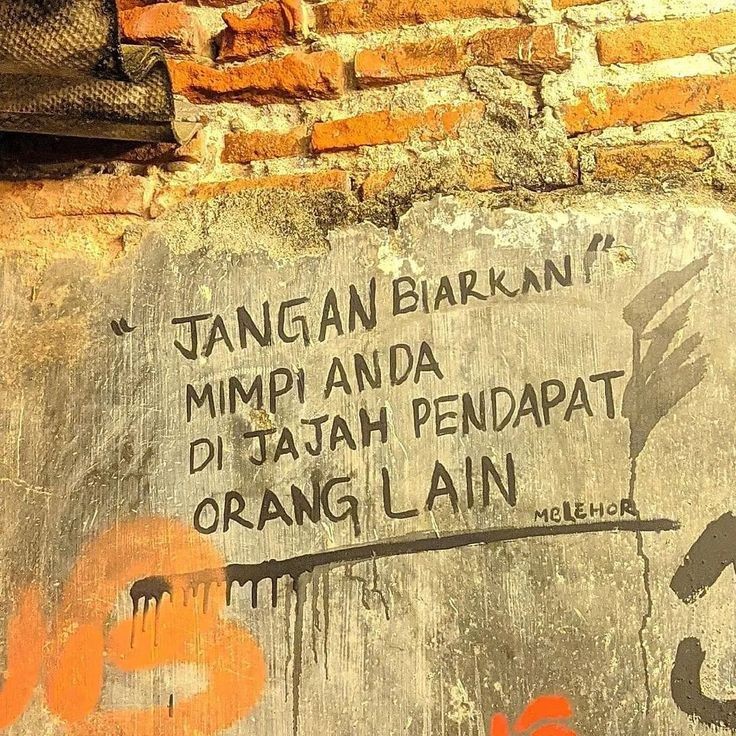 “ JANGAN BIARKAN ”
MIMPI ANDA
DI JAJAH PENDAPAT
ORANG LAIN
MBLEHOR